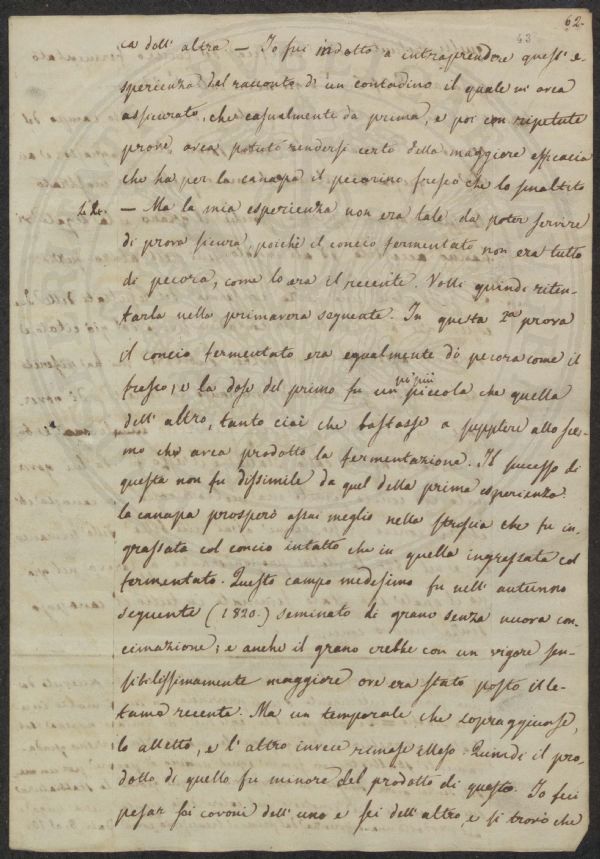 62.
43
ca dell' altra. — Io fui indotto a intraprendere quest' e-
sperienza dal racconto di un contadino il quale m' avea
assicurato, che casualmente da prima, e poi con ripetute
prove, avea potuto rendersi certo della maggiore efficacia
che ha per la canapa il pecorino fresco che lo smaltito
— Ma la mia esperienza non era tale da poter servire
di prova sicura, poichè il concio fermentato non era tutto
di pecora, come lo era il recente. Volli quindi riten-
tarla nella primavera seguente. In questa 2a prova
il concio fermentato era egualmente di pecora come il
fresco; e la dose del primo fu un piccola che quella
dell' altro, tanto cioè che bastasse a supplere allo sce-
mo che avea prodotto la fermentazione. Il successo di
questa non fu dissimile da quel della prima esperienza.
la canapa prosperò assai meglio nella striscia che fu in-
grassata col concio intatto che in quella ingrassata col
fermentato. Questo campo medesimo fu nell' autunno
seguente (1820.) seminato di grano senza nuova con-
cimazione; e anche il grano crebbe con un vigore sen-
sibilissimamente maggiore ove era stato posto il le-
tame recente. Ma un temporale che sopraggiunse,
lo allettò, e l' altro invece rimase illeso. Quindi il pro-
dotto di quello fu minore del prodotto di questo. Io feci
pesar sei covoni dell' uno e sei dell' altro, e si trovò che